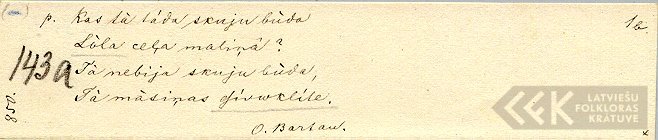 p. Kas tā tāda skuju būda 1b
Lōla ceļa maliņā?
143a Tā nebija skuju būda,
Tā māsiņas dzīvoklite.
O. Bartau.
LATVIEŠU
FOLKLORAS
KRĀTUVE